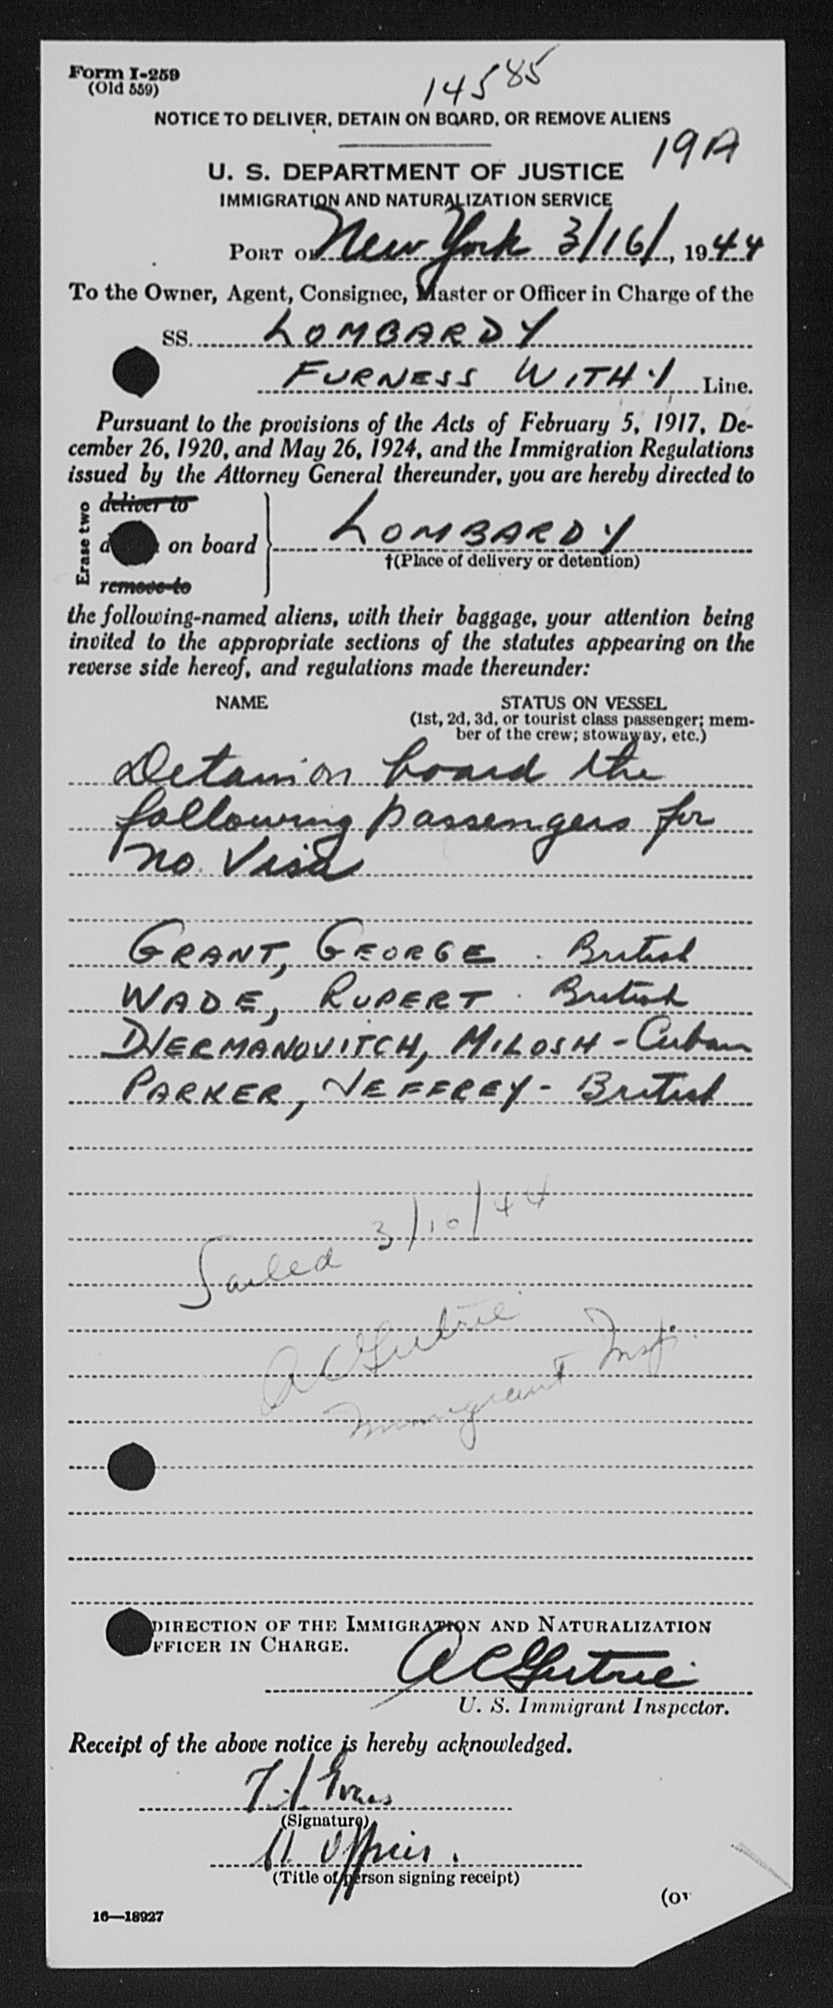 Form I-259
(Old 559)
14585
NOTICE TO DELIVER, DETAIN ON BOARD, OR REMOVE ALIENS
19A
U. S. DEPARTMENT OF JUSTICE
IMMIGRATION AND NATURALIZATION SERVICE
PORT OF New York 3/16/, 1944
To the Owner, Agent, Consignee, Master or Officer in Charge of the
SS. LOMBARDY
FURNESS WITHY Line.
Pursuant to the provisions of the Acts of February 5, 1917, De-
cember 26, 1920, and May 26, 1924, and the Immigration Regulations
issued by the Attorney General thereunder, you are hereby directed to
Erase two
deliver to
on board LOMBARDY
†(Place of delivery or detention)
remove to
the following-named aliens, with their baggage, your attention being
invited to the appropriate sections of the statutes appearing on the
reverse side hereof, and regulations made thereunder:
NAME STATUS ON VESSEL
(1st, 2d, 3d, or tourist class passenger; mem-
ber of the crew; stowaway, etc.)
Detain on board the
following passengers for
no Visa
GRANT, GEORGE . British
WADE, RUPERT . British
DJERMANOVITCH, MILOSH - Cuban
PARKER, JEFFREY - British
Sailed 3/10/44
A C Gutrie
Immigrant Insp.
DIRECTION OF THE IMMIGRATION AND NATURALIZATION
OFFICER IN CHARGE.
A C Gutrie
U. S. Immigrant Inspector.
Receipt of the above notice is hereby acknowledged.
(Signature)
(Title of person signing receipt)
16—18927